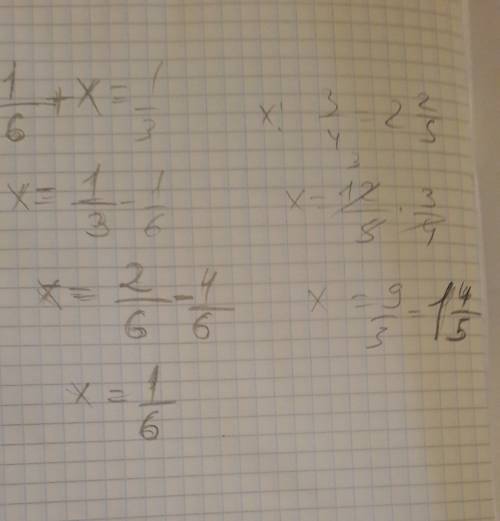 1/6 + x = 1/3
x = 1/3 - 1/6
x = 2/6 - 1/6
x = 1/6
x : 3/4 = 2 2/5
x = 12/5 · 3/4
x = 9/3 = 1 4/5